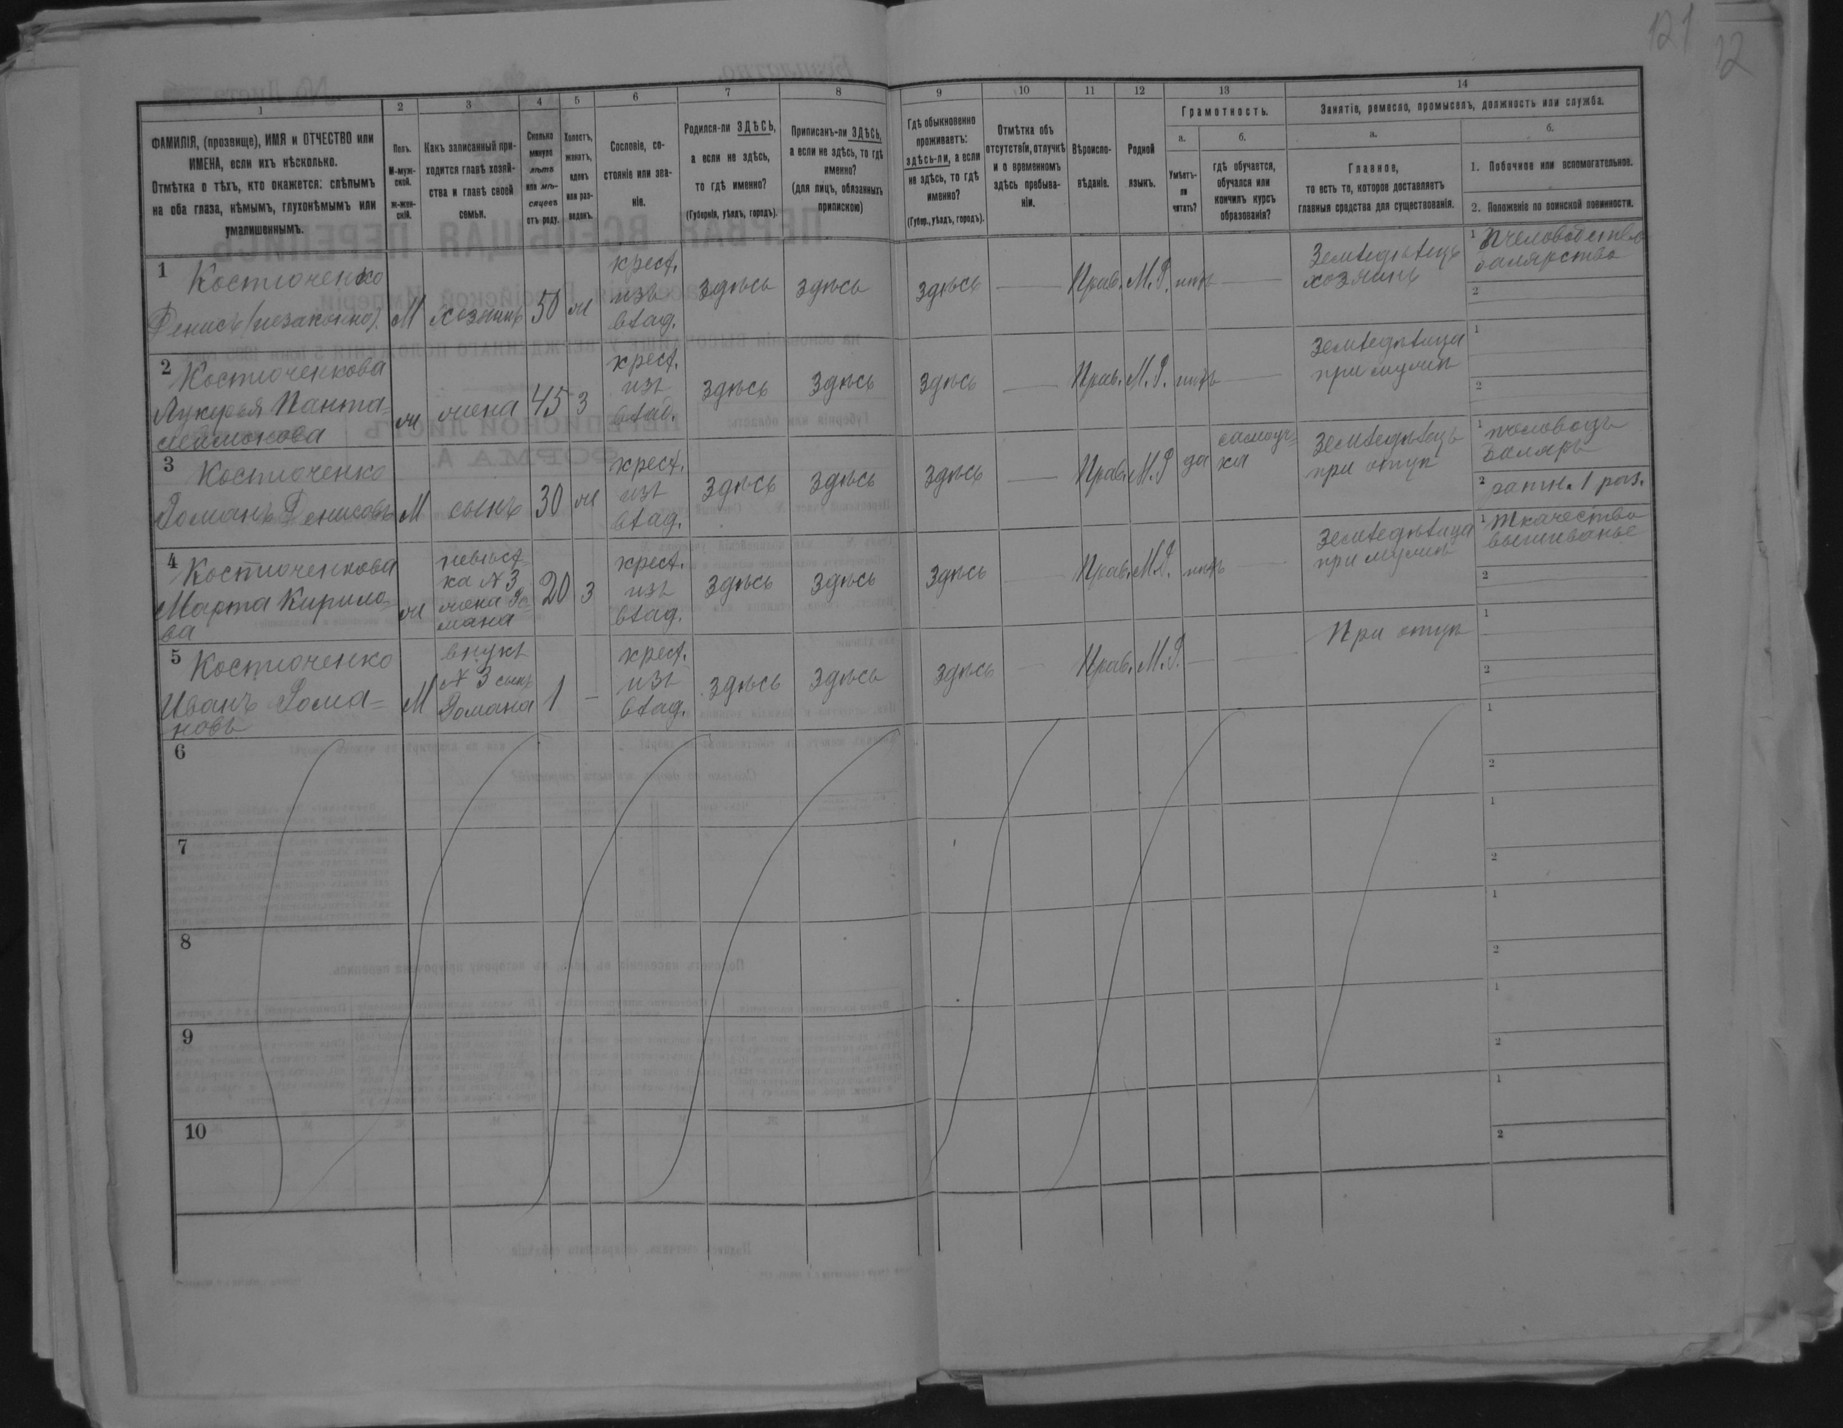 121
12
1
2
3
4
5
6
7
8
9
10
11
12
13
14
ФАМИЛІЯ, (прозвище), ИМЯ и ОТЧЕСТВО или
ИМЕНА, если ихъ нѣсколько.
Отмѣтка о тѣхъ, кто окажется: слѣпымъ
на оба глаза, нѣмымъ, глухонѣмымъ или
умалишеннымъ.
Полъ.
М-муж-
ской.
ж-жен-
скій.
Какъ записанный при-
ходится главѣ хозяй-
ства и главѣ своей
семьи.
Сколько
минуло
лѣтъ
или мѣ-
сяцевъ
отъ роду.
Холостъ,
женатъ,
вдовъ
или раз-
веденъ.
Сословіе, со-
стояніе или зва-
ніе.
Родился-ли ЗДѢСЬ,
а если не здѣсь,
то гдѣ именно?
(Губернія, уѣздъ, городъ).
Приписанъ-ли ЗДѢСЬ,
а если не здѣсь, то гдѣ
именно?
(для лицъ, обязанныхъ
припискою)
Гдѣ обыкновенно
проживаетъ:
здѣсь-ли, а если
не здѣсь, то гдѣ
именно?
(Губер., уѣздъ, городъ).
Отмѣтка объ
отсутствіи, отлучкѣ
и о временномъ
здѣсь пребыва-
ніи.
Вѣроиспо-
вѣданіе.
Родной
языкъ.
Грамотность.
а.
Умѣетъ-
ли
читать?
б.
гдѣ обучается,
обучался или
кончилъ курсъ
образованія?
Занятіе, ремесло, промыселъ, должность или служба.
а.
Главное,
то есть то, которое доставляетъ
главныя средства для существованія.
б.
1. Побочное или вспомогательное.
2. Положеніе по воинской повинности.
1 Костюченко
Денисъ (незаконно). М хозяинъ 50 ж крест. изъ влад. здѣсь здѣсь здѣсь — Прав. М.Р. нѣтъ — Земледѣлецъ хозяинъ 1 пчеловодство 2
2 Костюченкова
Лукерья Панта-
леймонова ж жена 45 з крест. изъ влад. здѣсь здѣсь здѣсь — Прав. М.Р. нѣтъ — Земледѣлица при мужѣ 1 2
3 Костюченко
Романъ Денисовъ М сынъ 30 ж крест. изъ влад. здѣсь здѣсь здѣсь — Прав. М.Р да самоуч-ка Земледѣлецъ при отцѣ 1 пчеловодъ 2 ратн. 1 раз.
4 Костюченкова
Марта Кирило-
ва ж невѣст-ка N 3 жена Ро-мана 20 з крест. изъ влад. здѣсь здѣсь здѣсь — Прав. М.Р. нѣтъ — Земледѣлица при мужѣ 1 Ткачество вышиванье 2
5 Костюченко
Иванъ Рома-
новъ М внукъ N 3 сынъ Романа 1 — крест. изъ влад. здѣсь здѣсь здѣсь — Прав. М.Р. — — При отцѣ 1 2
6 1 2
7 1 2
8 1 2
9 1 2
10 1 2